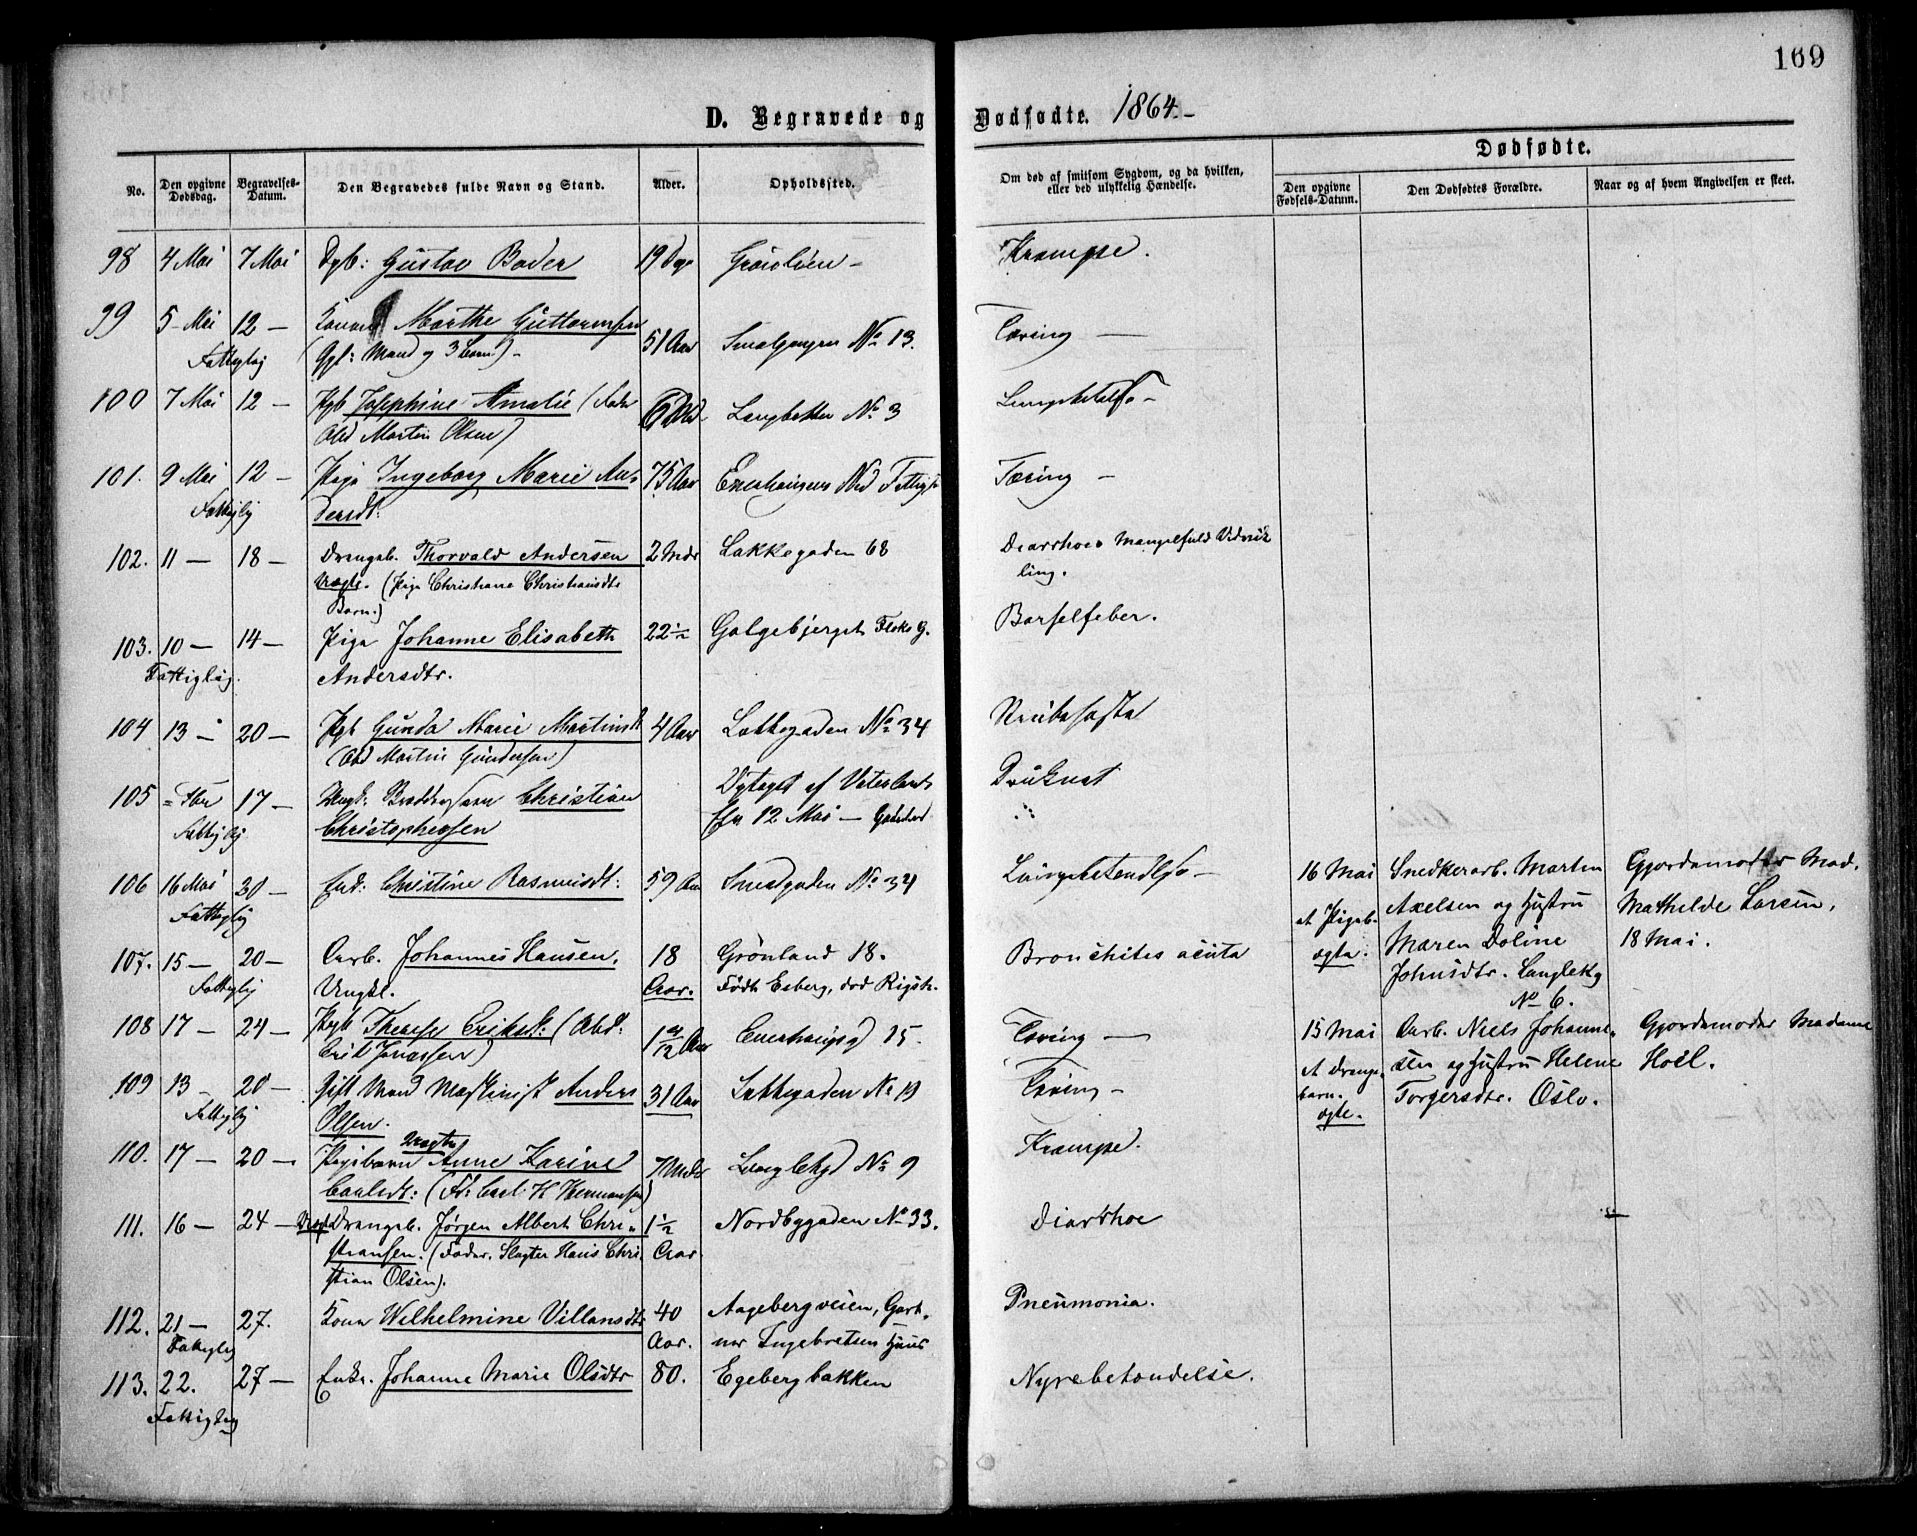 169
D. Begravede og Dødfødte. 1864.-
No.
Den opgivne Dødsdag.
Begravelses-Datum.
Den Begravedes fulde Navn og Stand.
Alder.
Opholdssted.
Om død af smitsom Sygdom, og da hvilken, eller ved ulykkelig Hændelse.
Dødfødte.
Den opgivne Fødsels-Datum.
Den Dødfødtes Forældre.
Naar og af hvem Angivelsen er skeet.
98 4 Mai 7 Mai Dgb: Gustav Bader 19 Dge Grønlien - Krampe.
99 5 Mai 12 - Kone Marthe Guttormsen 51 Aar Smalgangen No 13. Tæring -
Fattiglig (Gift: Mand og 3 Børn) -
100 7 Mai 12 - Pgb Josephine Amalie (Fader Langbakken No 3
Abd Martin Olsen)
101. 9 Mai 12 - Pige Ingeborg Marie An- 75 Aar Enerhaugens Tæring -
Fattiglig dersdt:
102. 11 - 18 - Drengeb. Thorvald Andersen 2 Mdr Lakkegaden 68 Diarrhoe, Mangelfuld Udvik
Uægte. (Pige Christiane Christiansdtr ling.
Barn.)
103. 10 - 14 - Pige Johanne Elisabeth 22 ½ Galgebjerget Barselfeber.
Fattiglig. Andersdtr.
104 13 - 20 - Pgb Gunda Marie Martinsdt 4 Aar Lakkegaden No 34 Strubehoste
(Abd Martin Gundersen)
105 17 - Ungk: Christian Optaget af Vaterlands Druknet
Fattiglig Christophersen 12 Mai -
106 16 Mai 20 - Enk: Christine Rasmusdt: 59 Aar Smedgaden No 34
Fattiglig
16 Mai Snedkerarb. Marten Gjordemoder Mad.
et Pigeb. Axelsen og Hustru Mathilde Larsen,
ægte. Maren Doline 18 Mai.
Johnsdtr. Langleky
No 6.
107. 15 - 20 - Arb. Johannes Hansen, 18 Grønland 18. Bronchites acuta
Fattiglig Ungkl. Aar. Født Esberg, død Rigsh.
108 17 - 24 - Pgb Therese Eriksdt: (Abd: Enerhaugsg 15. Tæring -
Erik Jonassen)
15 Mai Arb. Niels Johanne- Gjordemoder Madame
et Drenge- sen og Hustru Helene Hoël.
barn. Torgersdtr. Oslo.
ægte.
109 13 - 20 - Gift Mand Maskinist Anders 31 Aar Lakkegaden No 19 Tæring -
Fattiglig Olsen.
110. 17 - 20 - Pigebarn Uægte Anne Karine 7 Mdr Langlekg No 9 Krampe.
Carlsdt: (Fd: Carl H Hermansen)
111. 16 - 24 - Drengeb. Jørgen Albert Chri- 1 ½ Nordbygaden No 33. Diarrhoe
stiansen. (Fader. Slagter Hans Chri- Aar.
stian Olsen).
112. 21 - 27. Kone Wilhelmine Villansdtr 40 Aagebergveien, Gart- Pneumonia.
Fattiglig Aar. ner Ingebretsens Huus
113. 22. 27 - Enke. Johanne Marie Olsdtr 80. Egebergbakken Nyrebetændelse.
Fattiglig